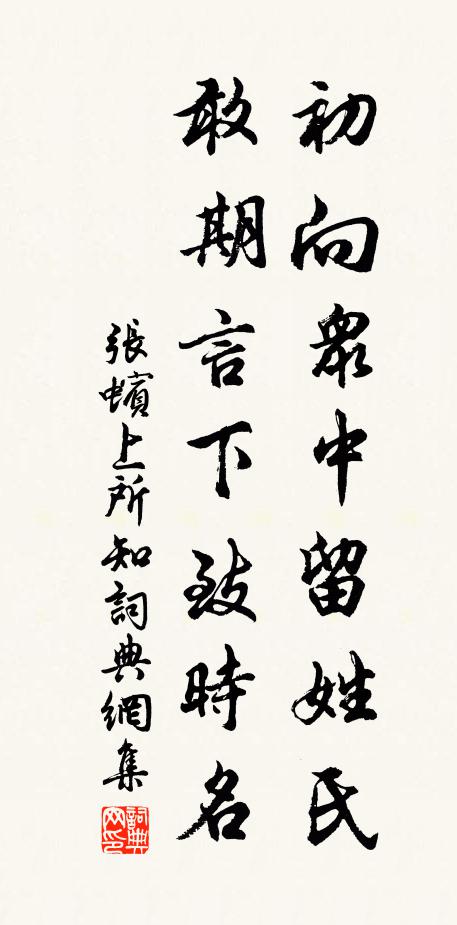 初向衆中留姓氏
敢期言下致時名
張蠙上所知詞典網集
詞典网印